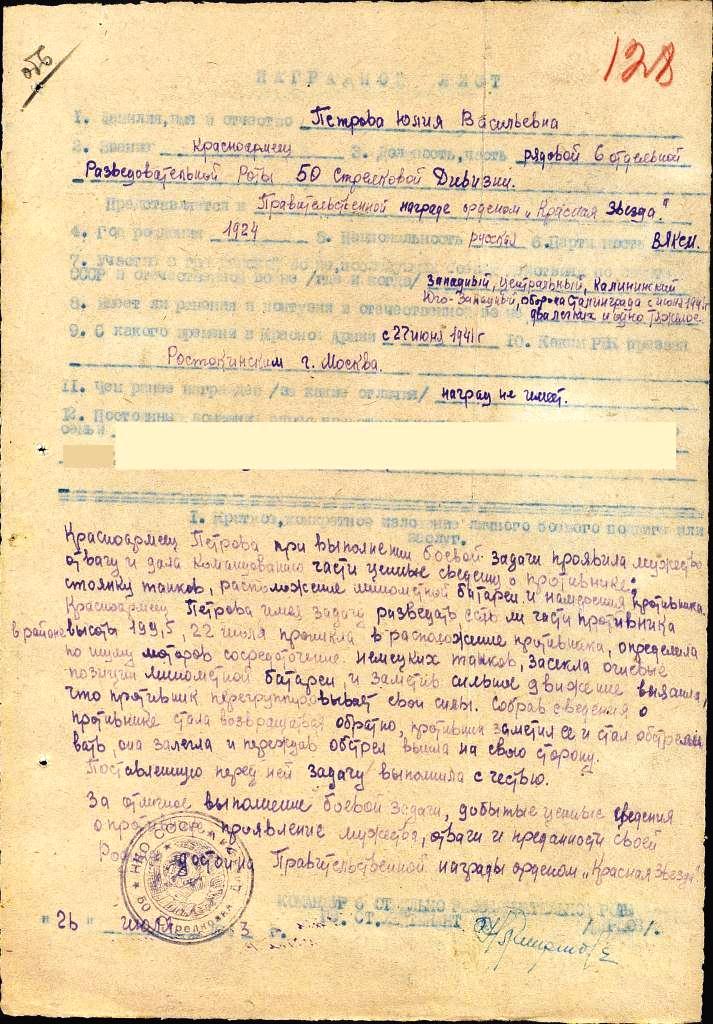 128
НАГРАДНОЙ ЛИСТ
1. Фамилия, имя и отчество Петрова Юлия Васильевна
2. Звание Красноармеец 3. Должность, часть рядовой 6 отдельной
Разведовательной Роты 50 Стрелковой Дивизии.
Представляется к Правительственной награде орденом „Красная Звезда."
4. Год рождения 1924 5. Национальность русская 6. Партийность ВЛКСМ.
7. Участие в
СССР и отечественной войне /где и когда/ Западный, Центральный, Калининский
Юго-Западный, оборона Сталинграда с июня 1941г
8. Имеет ли ранения и контузии в отечественной войне два легких и одно тяжелое
9. С какого времени в Красной Армии с 27 июня 1941г 10. Каким РВК призван
Ростокинским г. Москва.
11. Чем ранее награжден /за какие отличия/ наград не имеет.
12. Постоянный домашний адрес
семьи
I. Краткое, конкретное изложение личного боевого подвига или
заслуг.
Красноармеец Петрова при выполнении боевой задачи проявила мужество
отвагу и дала Командованию части ценные сведения о противнике:
стоянку танков, расположение минометной батареи и намерения противника.
Красноармеец Петрова имея задачу разведать есть ли части противника
в районе высоты 199,5, 22 июля прошла в расположение противника, определила
по шуму моторов сосредоточение немецких танков, засекла огневые
позиции минометной батареи, и заметив сильное движение выяснила,
что противник перегруппировывает свои силы. Собрав сведения о
противнике стала возвращаться обратно, противник заметил ее и стал обстрели
вать она залегла и переждав обстрел вышла на свою сторону.
Поставленную перед ней задачу выполнила с честью.
За отличное выполнение боевой задачи, добытые ценные сведения
о проявление мужества, отваги и преданности своей
достойна Правительственной награды орденом „Красная Звезда"
НКО СССР
КОМАНДИР 6 РОТЫ
СТ. ЛЕЙТЕНАНТ
" 26 " июля 3 г.